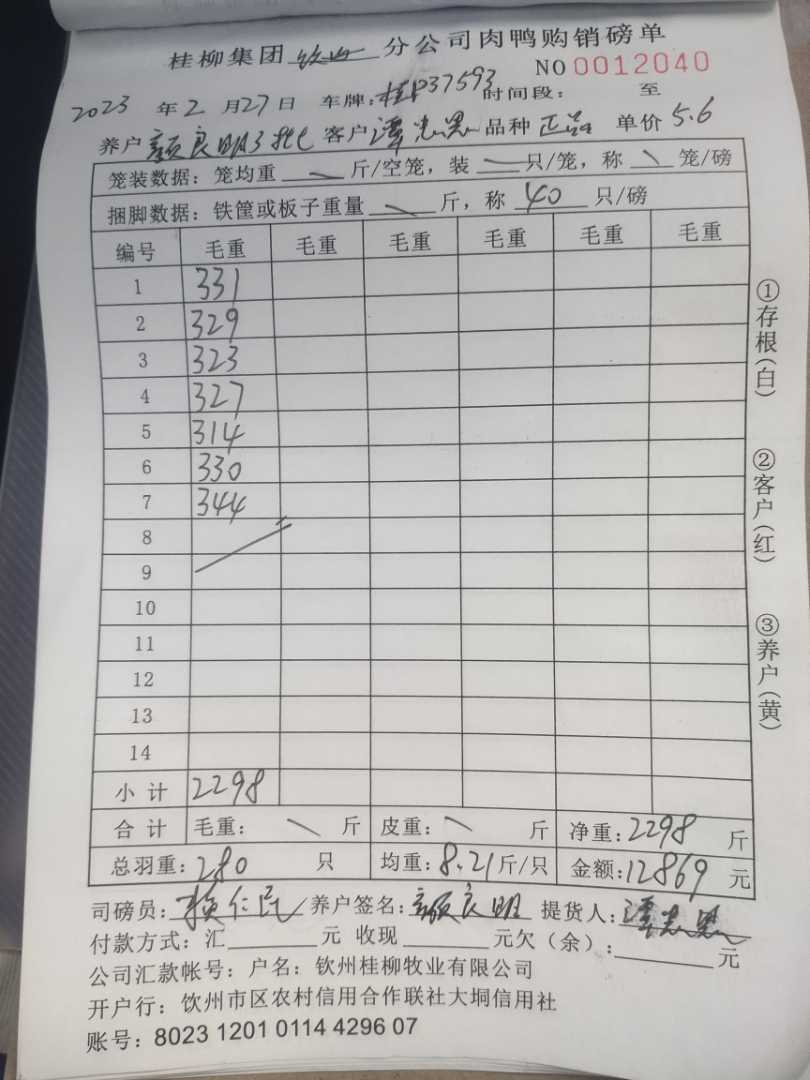 桂柳集团 钦州 分公司肉鸭购销磅单
NO 0012040
2023 年 2 月 27 日 车牌: 桂P37593 时间段: 至
养户 颜良明3批 客户 谭志恩 品种 正品 单价 5.6
笼装数据: 笼均重 斤/空笼, 装 只/笼, 称 笼/磅
捆脚数据: 铁筐或板子重量 斤, 称 40 只/磅
编号 毛重 毛重 毛重 毛重 毛重 毛重
1 331
2 329
3 323
4 327
5 314
6 330
7 344
8
9
10
11
12
13
14
小计 2298
合计 毛重: 斤 皮重: 斤 净重: 2298 斤
总羽重: 280 只 均重: 8.21 斤/只 金额: 12869 元
司磅员: 赖仁民 养户签名: 颜良明 提货人: 谭志恩
付款方式: 汇 元 收现 元欠(余): 元
公司汇款帐号: 户名: 钦州桂柳牧业有限公司
开户行: 钦州市区农村信用合作联社大垌信用社
账号: 8023 1201 0114 4296 07
①存根(白)
②客户(红)
③养户(黄)